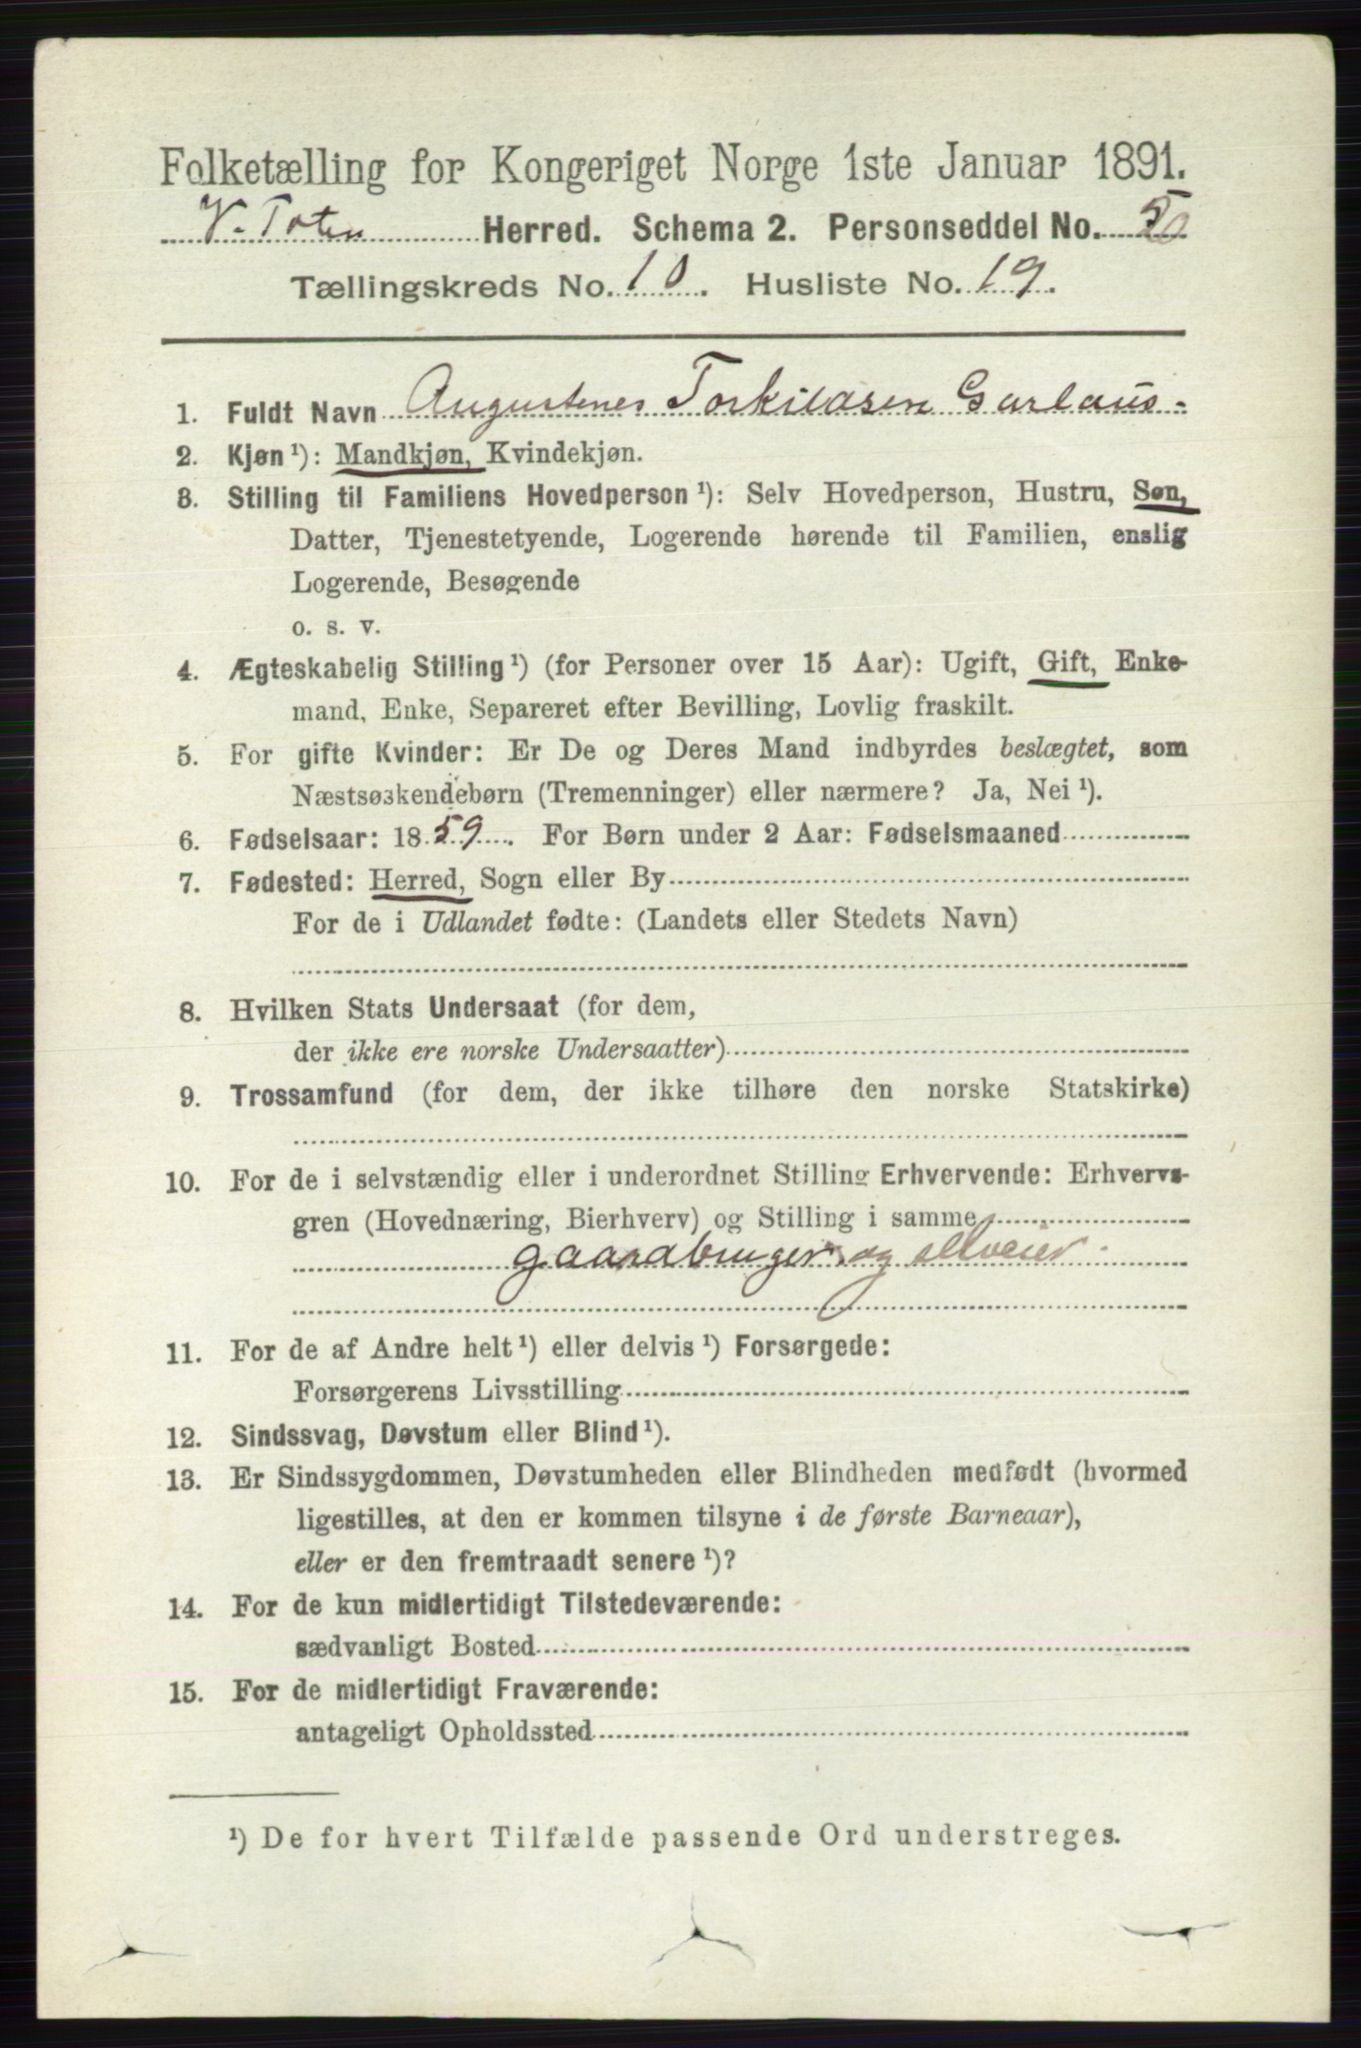 Folketælling for Kongeriget Norge 1ste Januar 1891.
V. Toten Herred. Schema 2. Personseddel No. 50
Tællingskreds No. 10. Husliste No. 19.
1. Fuldt Navn Augustenes Torkildsen Garlaus-
2. Kjøn¹): Mandkjøn, Kvindekjøn.
3. Stilling til Familiens Hovedperson¹): Selv Hovedperson, Hustru, Søn,
Datter, Tjenestetyende, Logerende hørende til Familien, enslig
Logerende, Besøgende
o. s. v.
4. Ægteskabelig Stilling¹) (for Personer over 15 Aar): Ugift, Gift, Enke-
mand, Enke, Separeret efter Bevilling, Lovlig fraskilt.
5. For gifte Kvinder: Er De og Deres Mand indbyrdes beslægtet, som
Næstsøskendebørn (Tremenninger) eller nærmere? Ja, Nei¹).
6. Fødselsaar: 1859. For Børn under 2 Aar: Fødselsmaaned
7. Fødested: Herred, Sogn eller By
For de i Udlandet fødte: (Landets eller Stedets Navn)
8. Hvilken Stats Undersaat (for dem,
der ikke ere norske Undersaatter)
9. Trossamfund (for dem, der ikke tilhøre den norske Statskirke)
10. For de i selvstændig eller i underordnet Stilling Erhvervende: Erhvervs-
gren (Hovednæring, Bierhverv) og Stilling i samme
gaardbruger og selveier.
11. For de af Andre helt¹) eller delvis¹) Forsørgede:
Forsørgerens Livsstilling
12. Sindssvag, Døvstum eller Blind¹).
13. Er Sindssygdommen, Døvstumheden eller Blindheden medfødt (hvormed
ligestilles, at den er kommen tilsyne i de første Barneaar),
eller er den fremtraadt senere¹)?
14. For de kun midlertidigt Tilstedeværende:
sædvanligt Bosted
15. For de midlertidigt Fraværende:
antageligt Opholdssted
¹) De for hvert Tilfælde passende Ord understreges.